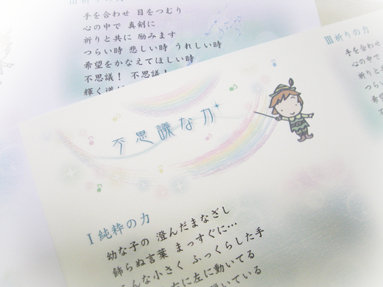 手を合わせ 目をつむり
心の中で 真剣に
祈りと共に 励みます
つらい時 悲しい時 うれしい時
希望をかなえてほしい時
不思議! 不思議!
Ⅲ 祈りの力
手を合わせ
心の中で
不思議な力
Ⅰ 純粋の力
幼な子の 澄んだまなざし
飾らぬ言葉 まっすぐに…
んな小さく ふっくらした手
右に左に動いてる